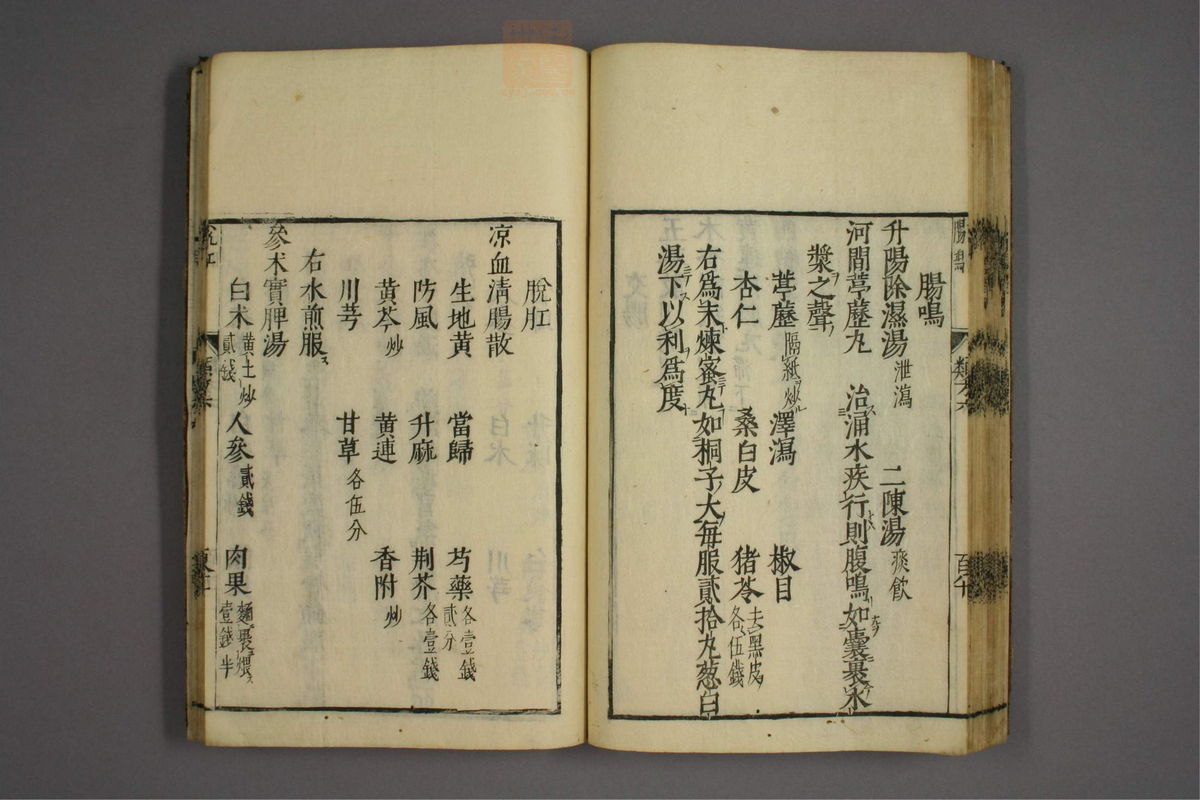 腸鳴
升陽除濕湯 泄瀉 二陳湯 痰飲
河間葶藶丸 治涌水疾行則腹鳴如囊裹水
漿之聲
葶藶 膈紙炒 澤瀉 椒目
杏仁 桑白皮 猪苓 去黑皮各伍錢
右爲末煉蜜丸如桐子大每服貳拾丸葱白
湯下以利爲度
脫肛
凉血清腸散
生地黄 當歸 芍藥 各壹錢貳分
防風 升麻 荆芥 各壹錢
黄芩 炒 黄連 香附 炒
川芎 甘草 各伍分
右水煎服
參术實脾湯
白术 黄土炒貳錢 人參 貳錢 肉果 麵裹煨壹錢半